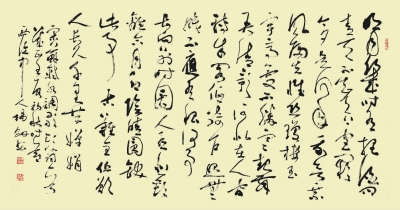 明月几时有把酒问
青天不知天上宫阙
今夕是何年我欲乘
风归去惟恐琼楼玉
宇高处不胜寒起舞
弄清影何似在人间
转朱阁低绮户照无
眠不应有恨何事
长向别时圆人有悲欢
离合月有阴晴圆缺
此事古难全但愿
人长久千里共婵娟
宋苏轼水调歌头